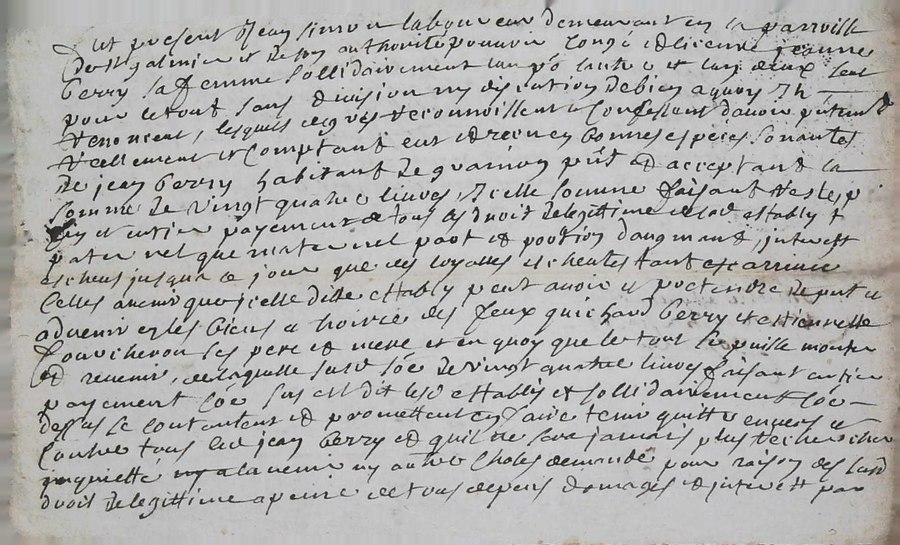 fut present Jean simon laboureur demeurant en la parroisse
De St galmier et de son authorité pouvoir Congé et licence jeanne
berry sa femme sollidairement l'un po lautre et lun deux seul
pour le tout sans division ny discution de bien a quoy Ih
renoncent, lesquels de gres reconnoissent et Confessent davoir
reellement et Comptant eut et receu en bonnes especes sonantes
De jean berry habitant de pnt et acceptant la
somme de vingt quatre livres, Icelle somme faisant reste, p
et entier payement de tous les droit de legittime et sud establyt
paternel que maternel part et portion daugmant, interest
escheus jusqua ce jour que des loyalles escheutes tant et
Celles avenir que icelle ditte establyt peut avoir et pretendre
advenir et les biens et hoirie des feux berry et estiennette
souvcheron ses pere et mere et en quoy que le tout se puisse monter
et revenir, de laquelle susd soe de vingt quatre livres faisant entier
payement Coe sus est dit lesd establys et sollidairement Coe
dessus se Contentent et promettent en faire tenir quitte envers et
Contre tous led jean berry et quil ne sera jamais plus recherché
inquietté a lavenir ny autre Choses demandé pour raison des susd
droit de legittime a peine de tous depens domages et interest par